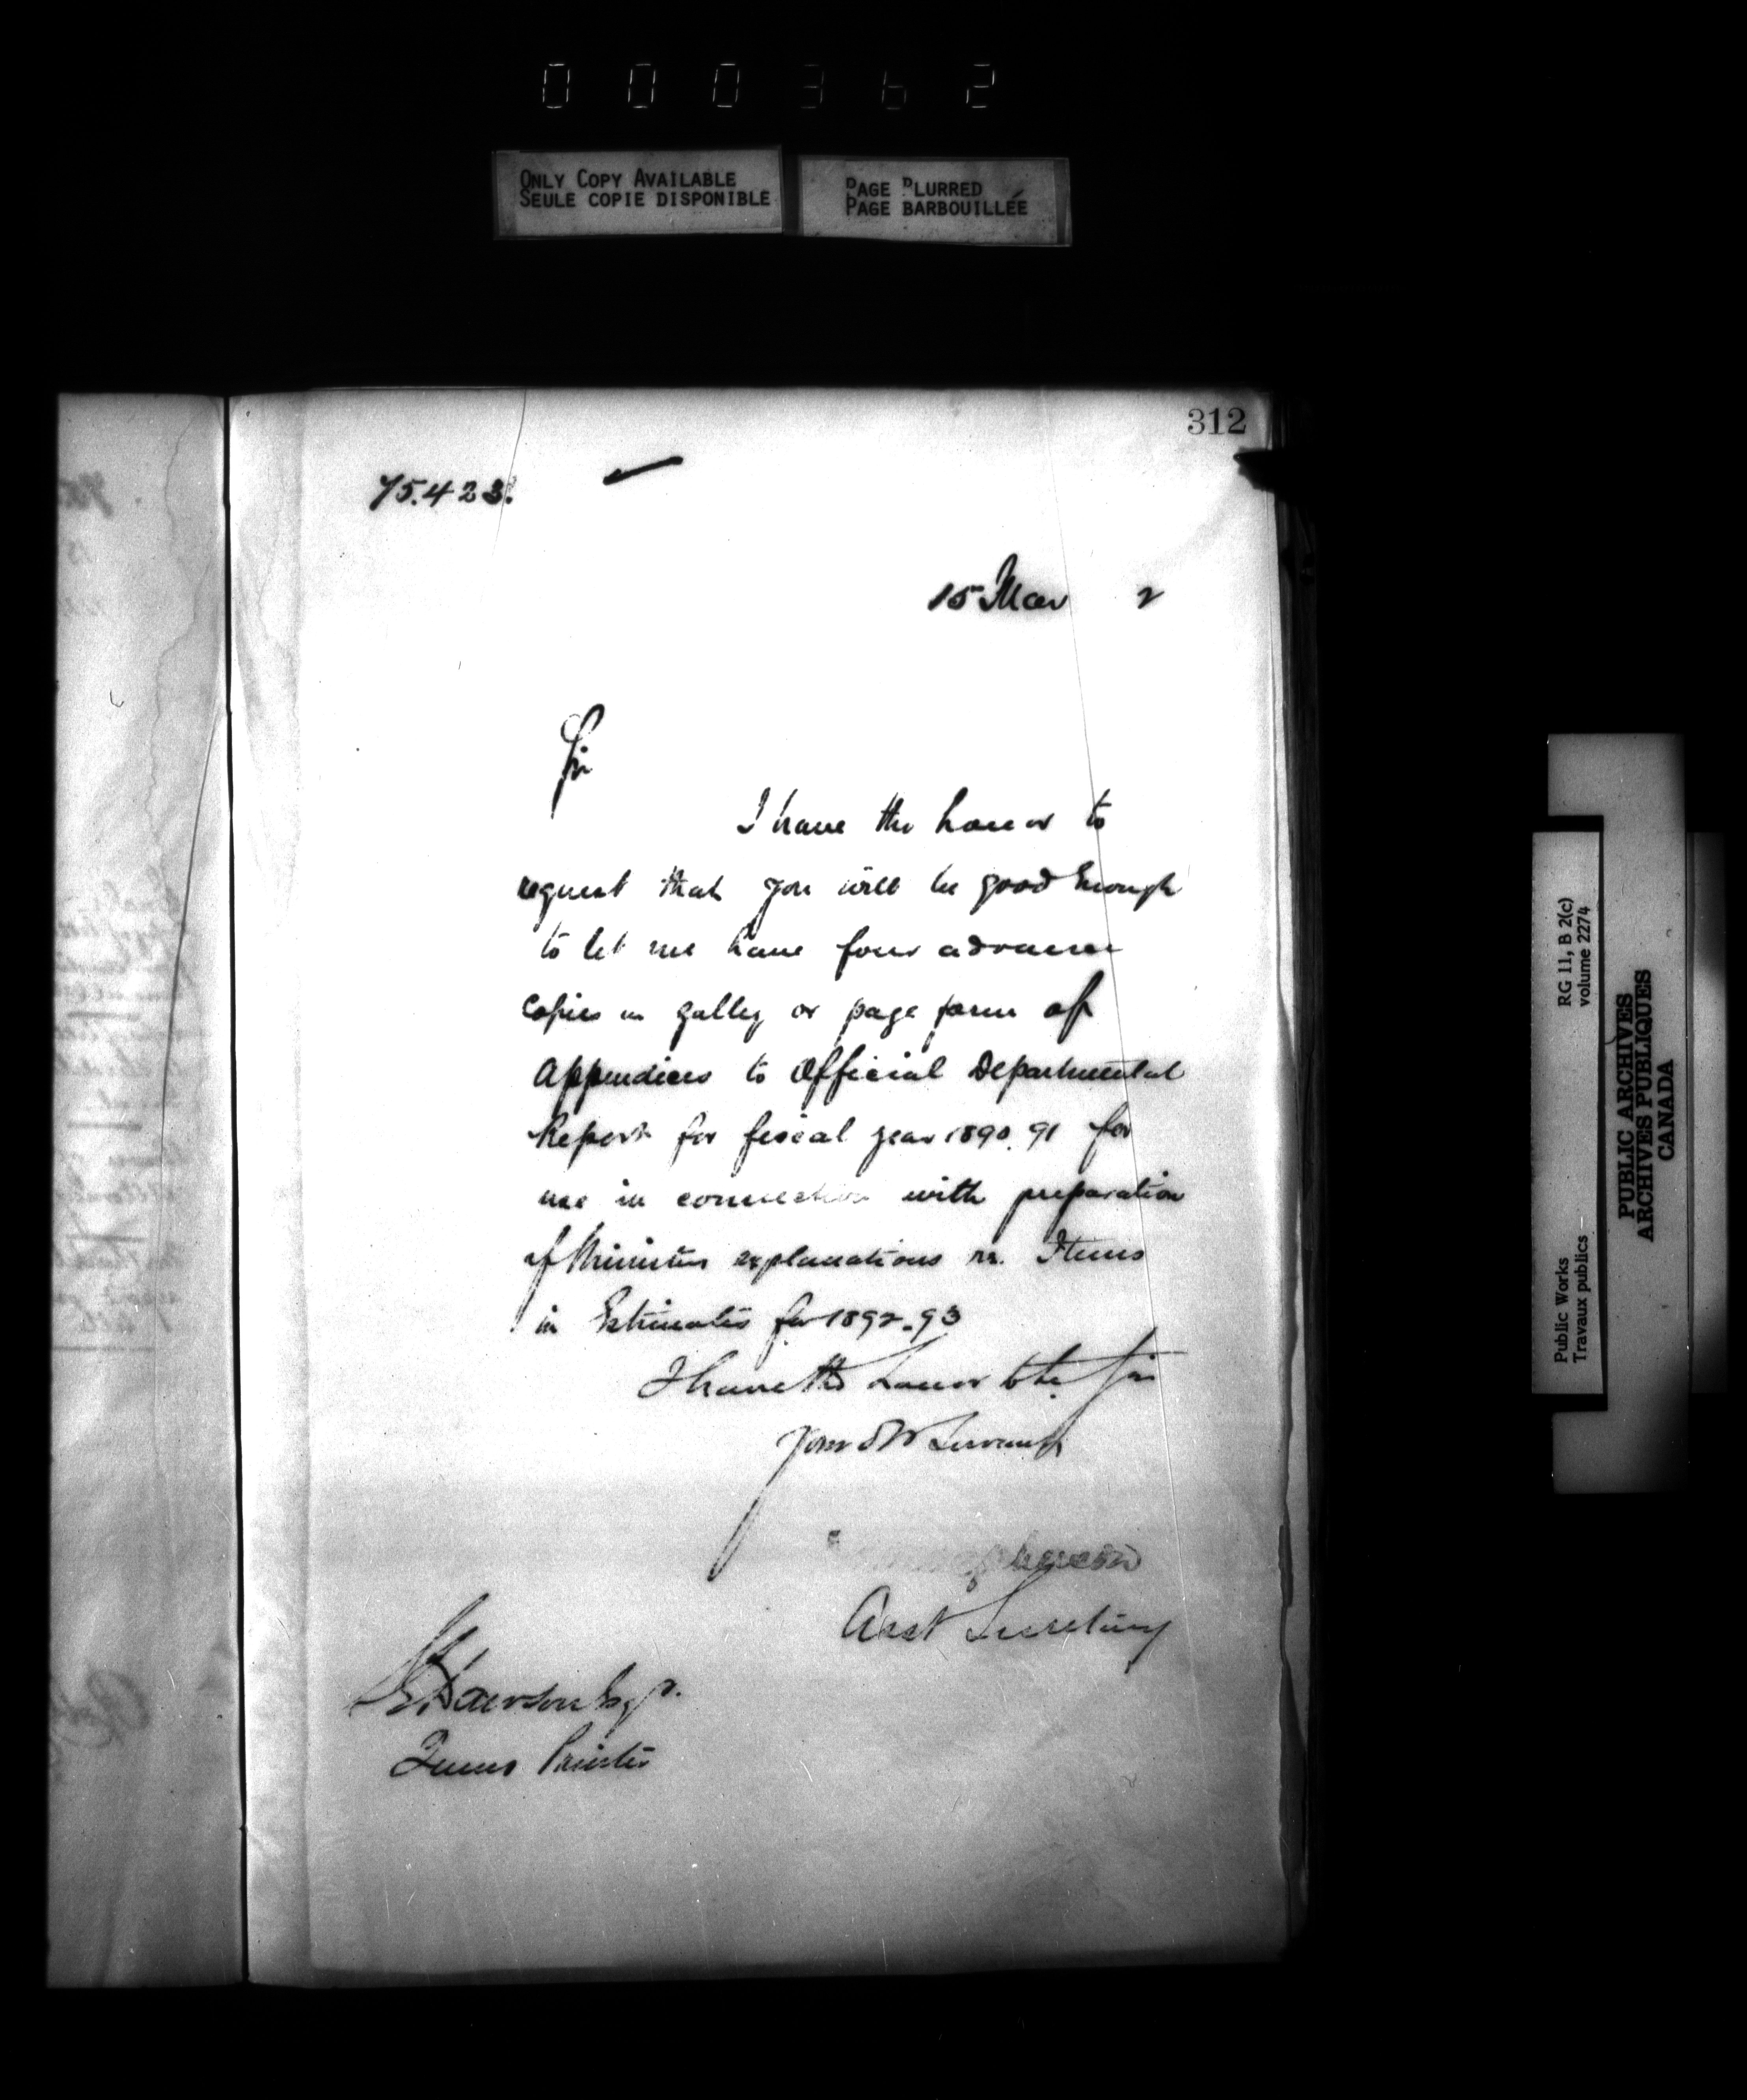 000362
ONLY COPY AVAILABLE
SEULE COPIE DISPONIBLE
PAGE BLURRED
PAGE BARBOUILLÉE
312
75.423.
15 Mar 2
Sir
I have the honor to
request that you will be good Enough
to let me have four advance
Copies in galley or page form of
Appendices to Official Departmental
Report for fiscal year 1890.91 for
use in connection with preparation
of Ministers explanations re. Items
in Estimates for 1892-93
I have the honor to be Sir
Your Ob Servant
Asst Secretary
Dawson Esqr.
Queens Printer
RG 11, B 2(c)
volume 2274
Public Works
Travaux publics
PUBLIC ARCHIVES
ARCHIVES PUBLIQUES
CANADA